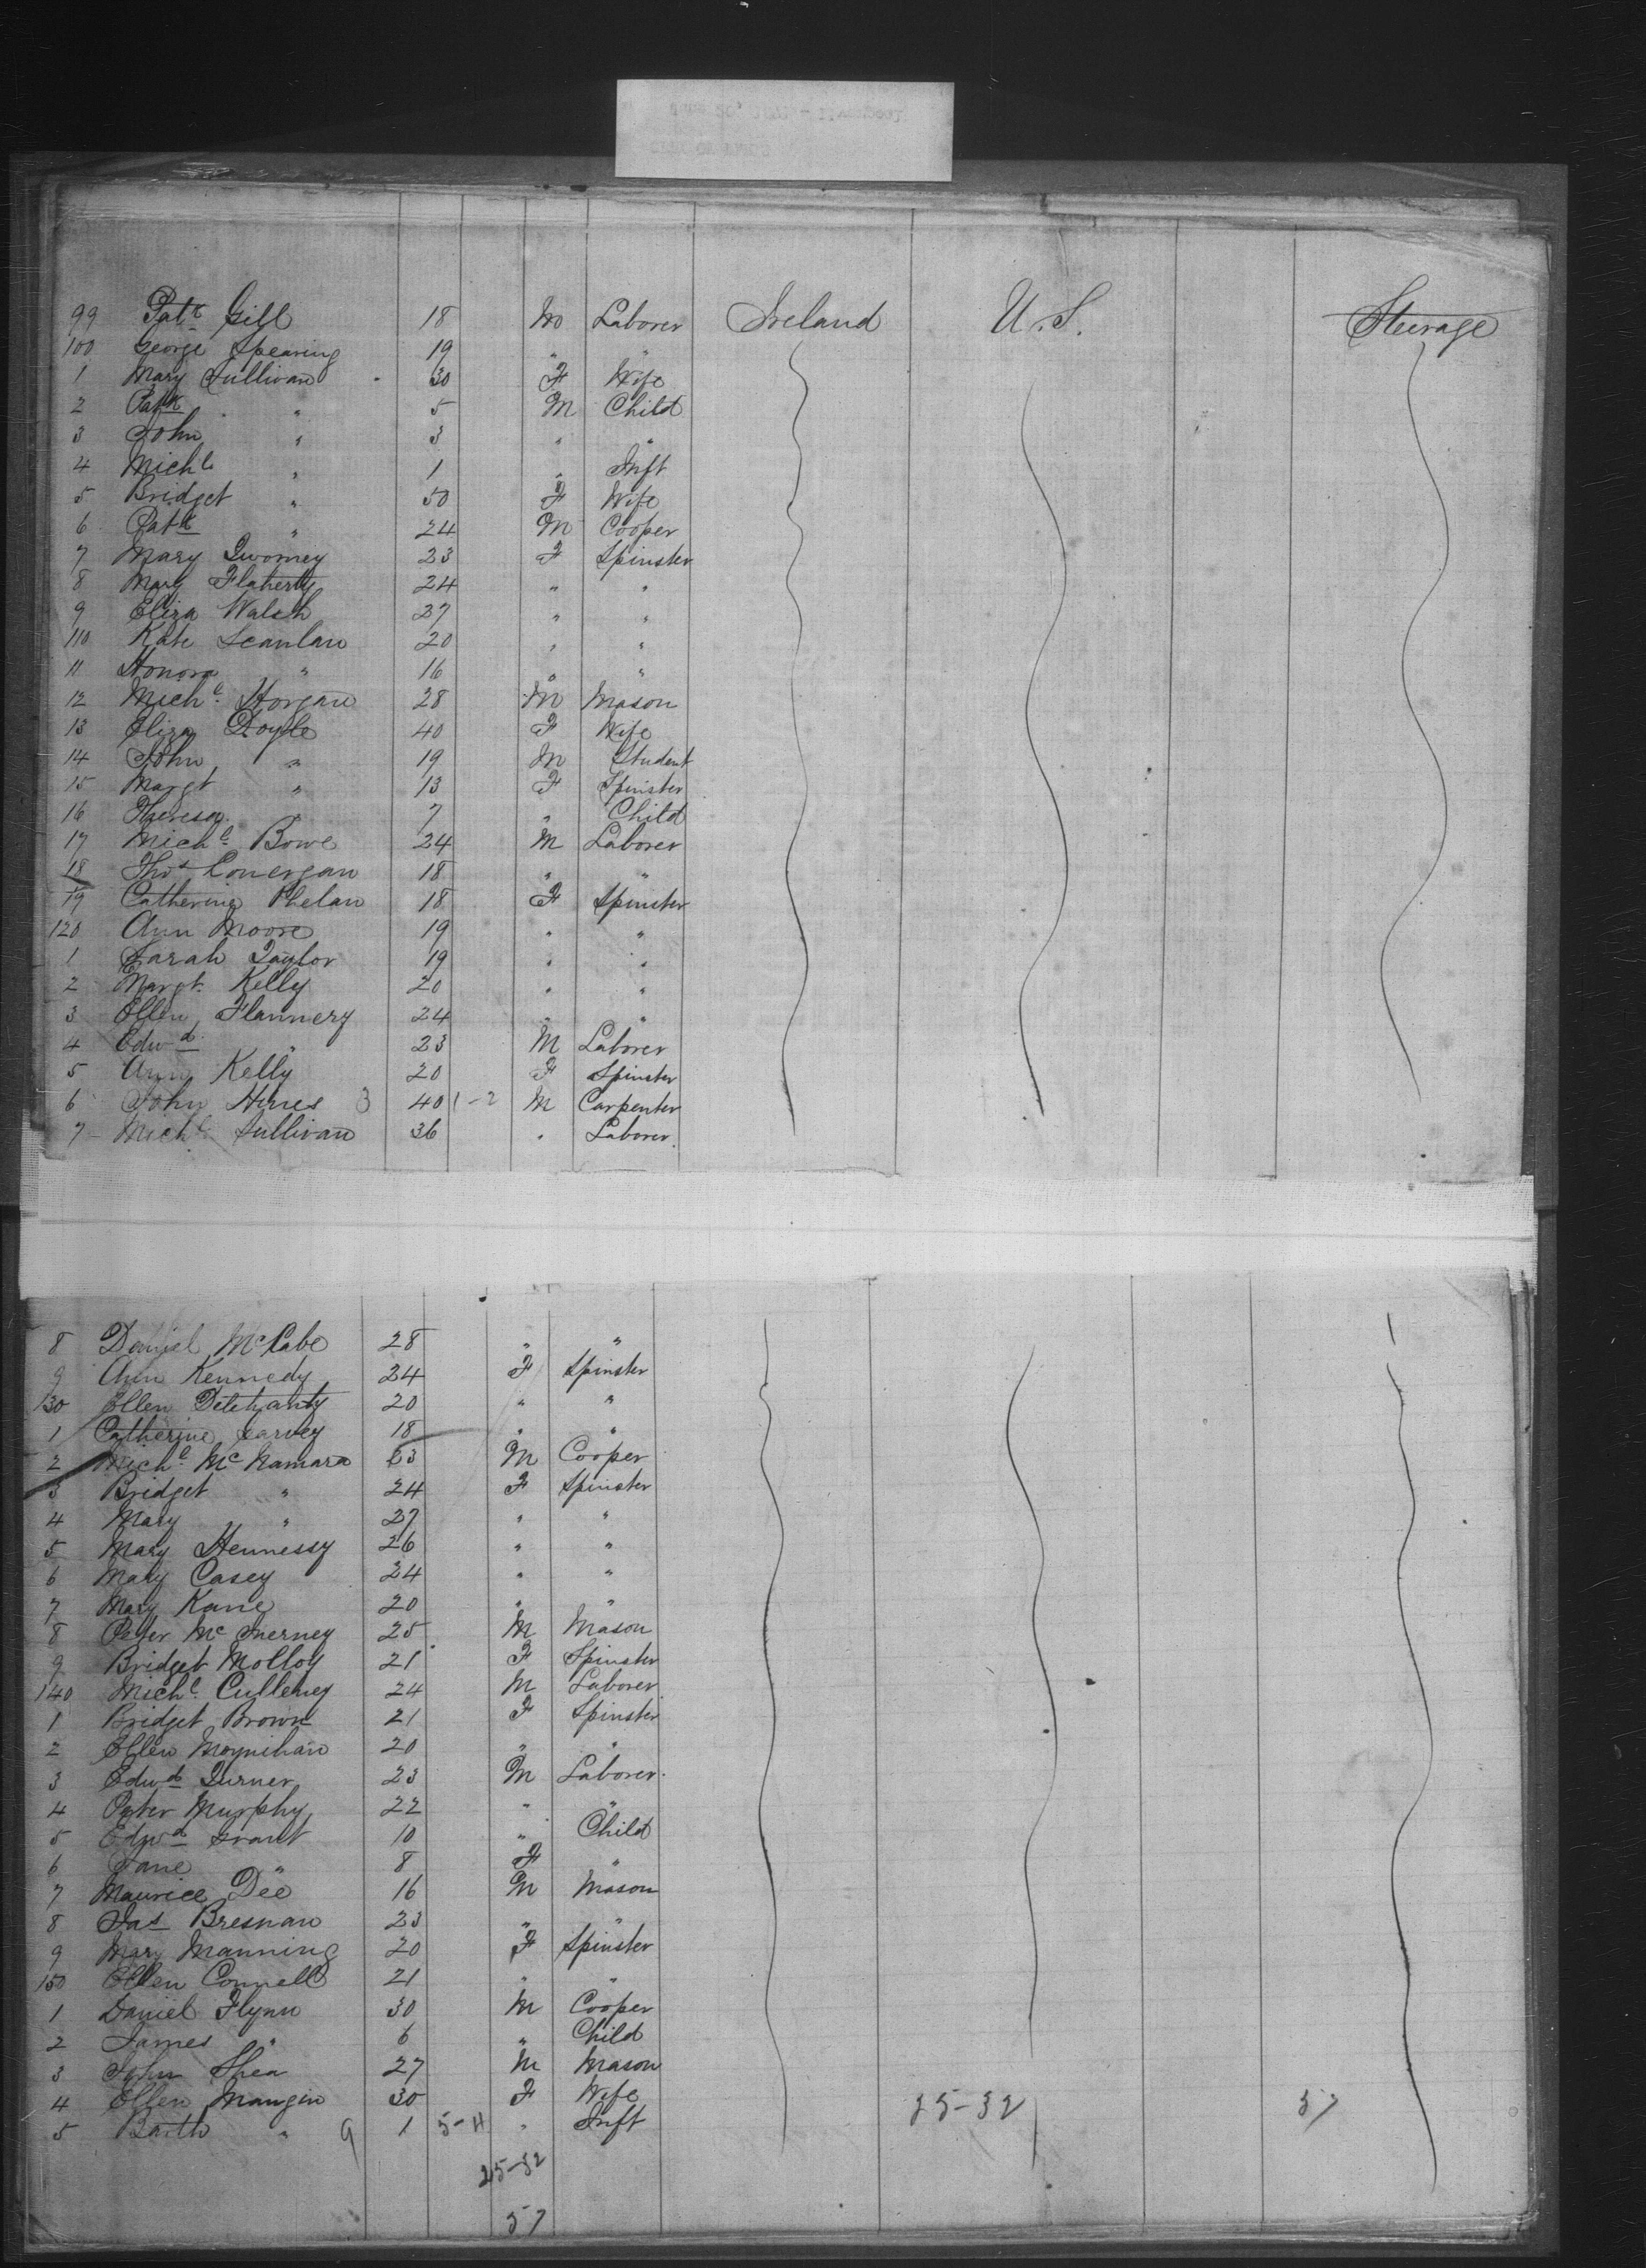 99 Patk Gill 18 M Laborer Ireland U.S. Steerage
100 George Spearing 19 " "
1 Mary Sullivan 30 F Wife
2 Patk " 5 M Child
3 John " 3 " "
4 Michl " 1 " Inft
5 Bridget " 50 F Wife
6 Patk " 24 M Cooper
7 Mary Twomey 23 F Spinster
8 Mary Flaherty 24 " "
9 Eliza Walsh 27 " "
110 Kate Scanlan 20 " "
11 Honora " 16 " "
12 Michl Horgan 28 M Mason
13 Eliza Doyle 40 F Wife
14 John " 19 M Student
15 Margt " 13 F Spinster
16 Theresa " 7 " Child
17 Michl Bowe 24 M Laborer
18 Thos Conergan 18 " "
19 Catherine Phelan 18 F Spinster
120 Ann Moore 19 " "
1 Sarah Taylor 19 " "
2 Margt Kelly 20 " "
3 Ellen Flannery 24 " "
4 Edwd " 23 M Laborer
5 Ann Kelly 20 F Spinster
6 John Hines 3 40 1-2 M Carpenter
7 Michl Sullivan 36 " Laborer
8 Daniel McCabe 28 " "
9 Ann Kennedy 24 F Spinster
130 Ellen Delehanty 20 " "
1 Catherine Garvey 18 " "
2 Michl McNamara 23 M Cooper
3 Bridget " 24 F Spinster
4 Mary " 27 " "
5 Mary Hennessy 26 " "
6 Mary Casey 24 " "
7 Mary Kane 20 " "
8 Peter McInerney 25 M Mason
9 Bridget Molloy 21 F Spinster
140 Michl Culleney 24 M Laborer
1 Bridget Brown 21 F Spinster
2 Ellen Moynihan 20 " "
3 Edwd Turner 23 M Laborer
4 Peter Murphy 22 " "
5 Edwd Grant 10 " Child
6 Jane " 8 F "
7 Maurice Dee 16 M Mason
8 Jas Bresnan 23 " "
9 Mary Manning 20 F Spinster
150 Ellen Connell 21 " "
1 Daniel Flynn 30 M Cooper
2 James " 6 " Child
3 John Shea 27 M Mason
4 Ellen Mangin 30 F Wife 25-32 57
5 Barth " 9 1 5-4 " Inft
25-32
57